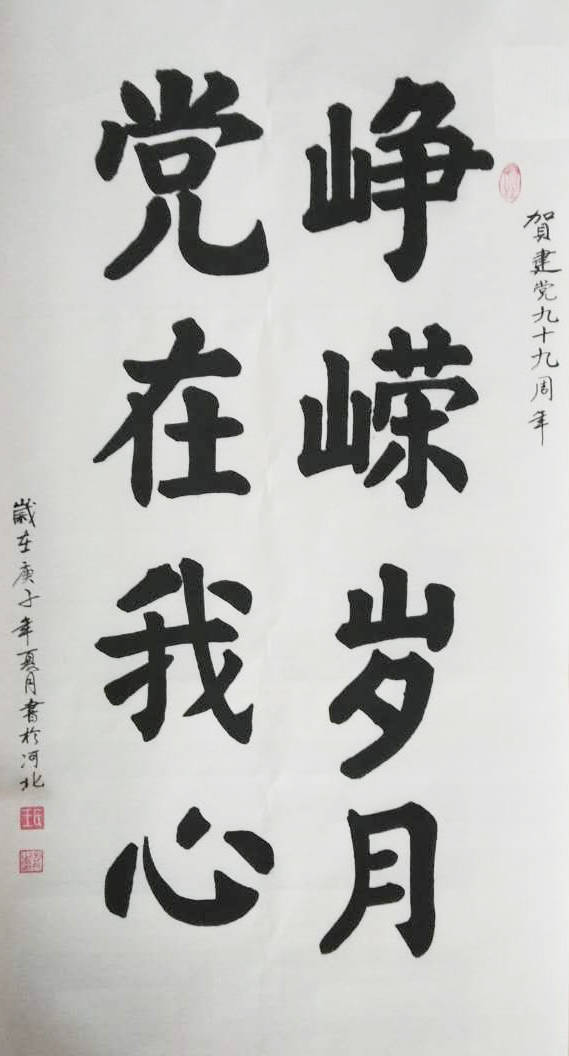 贺建党九十九周年
峥嵘岁月
党在我心
歲在庚子年夏月書於河北